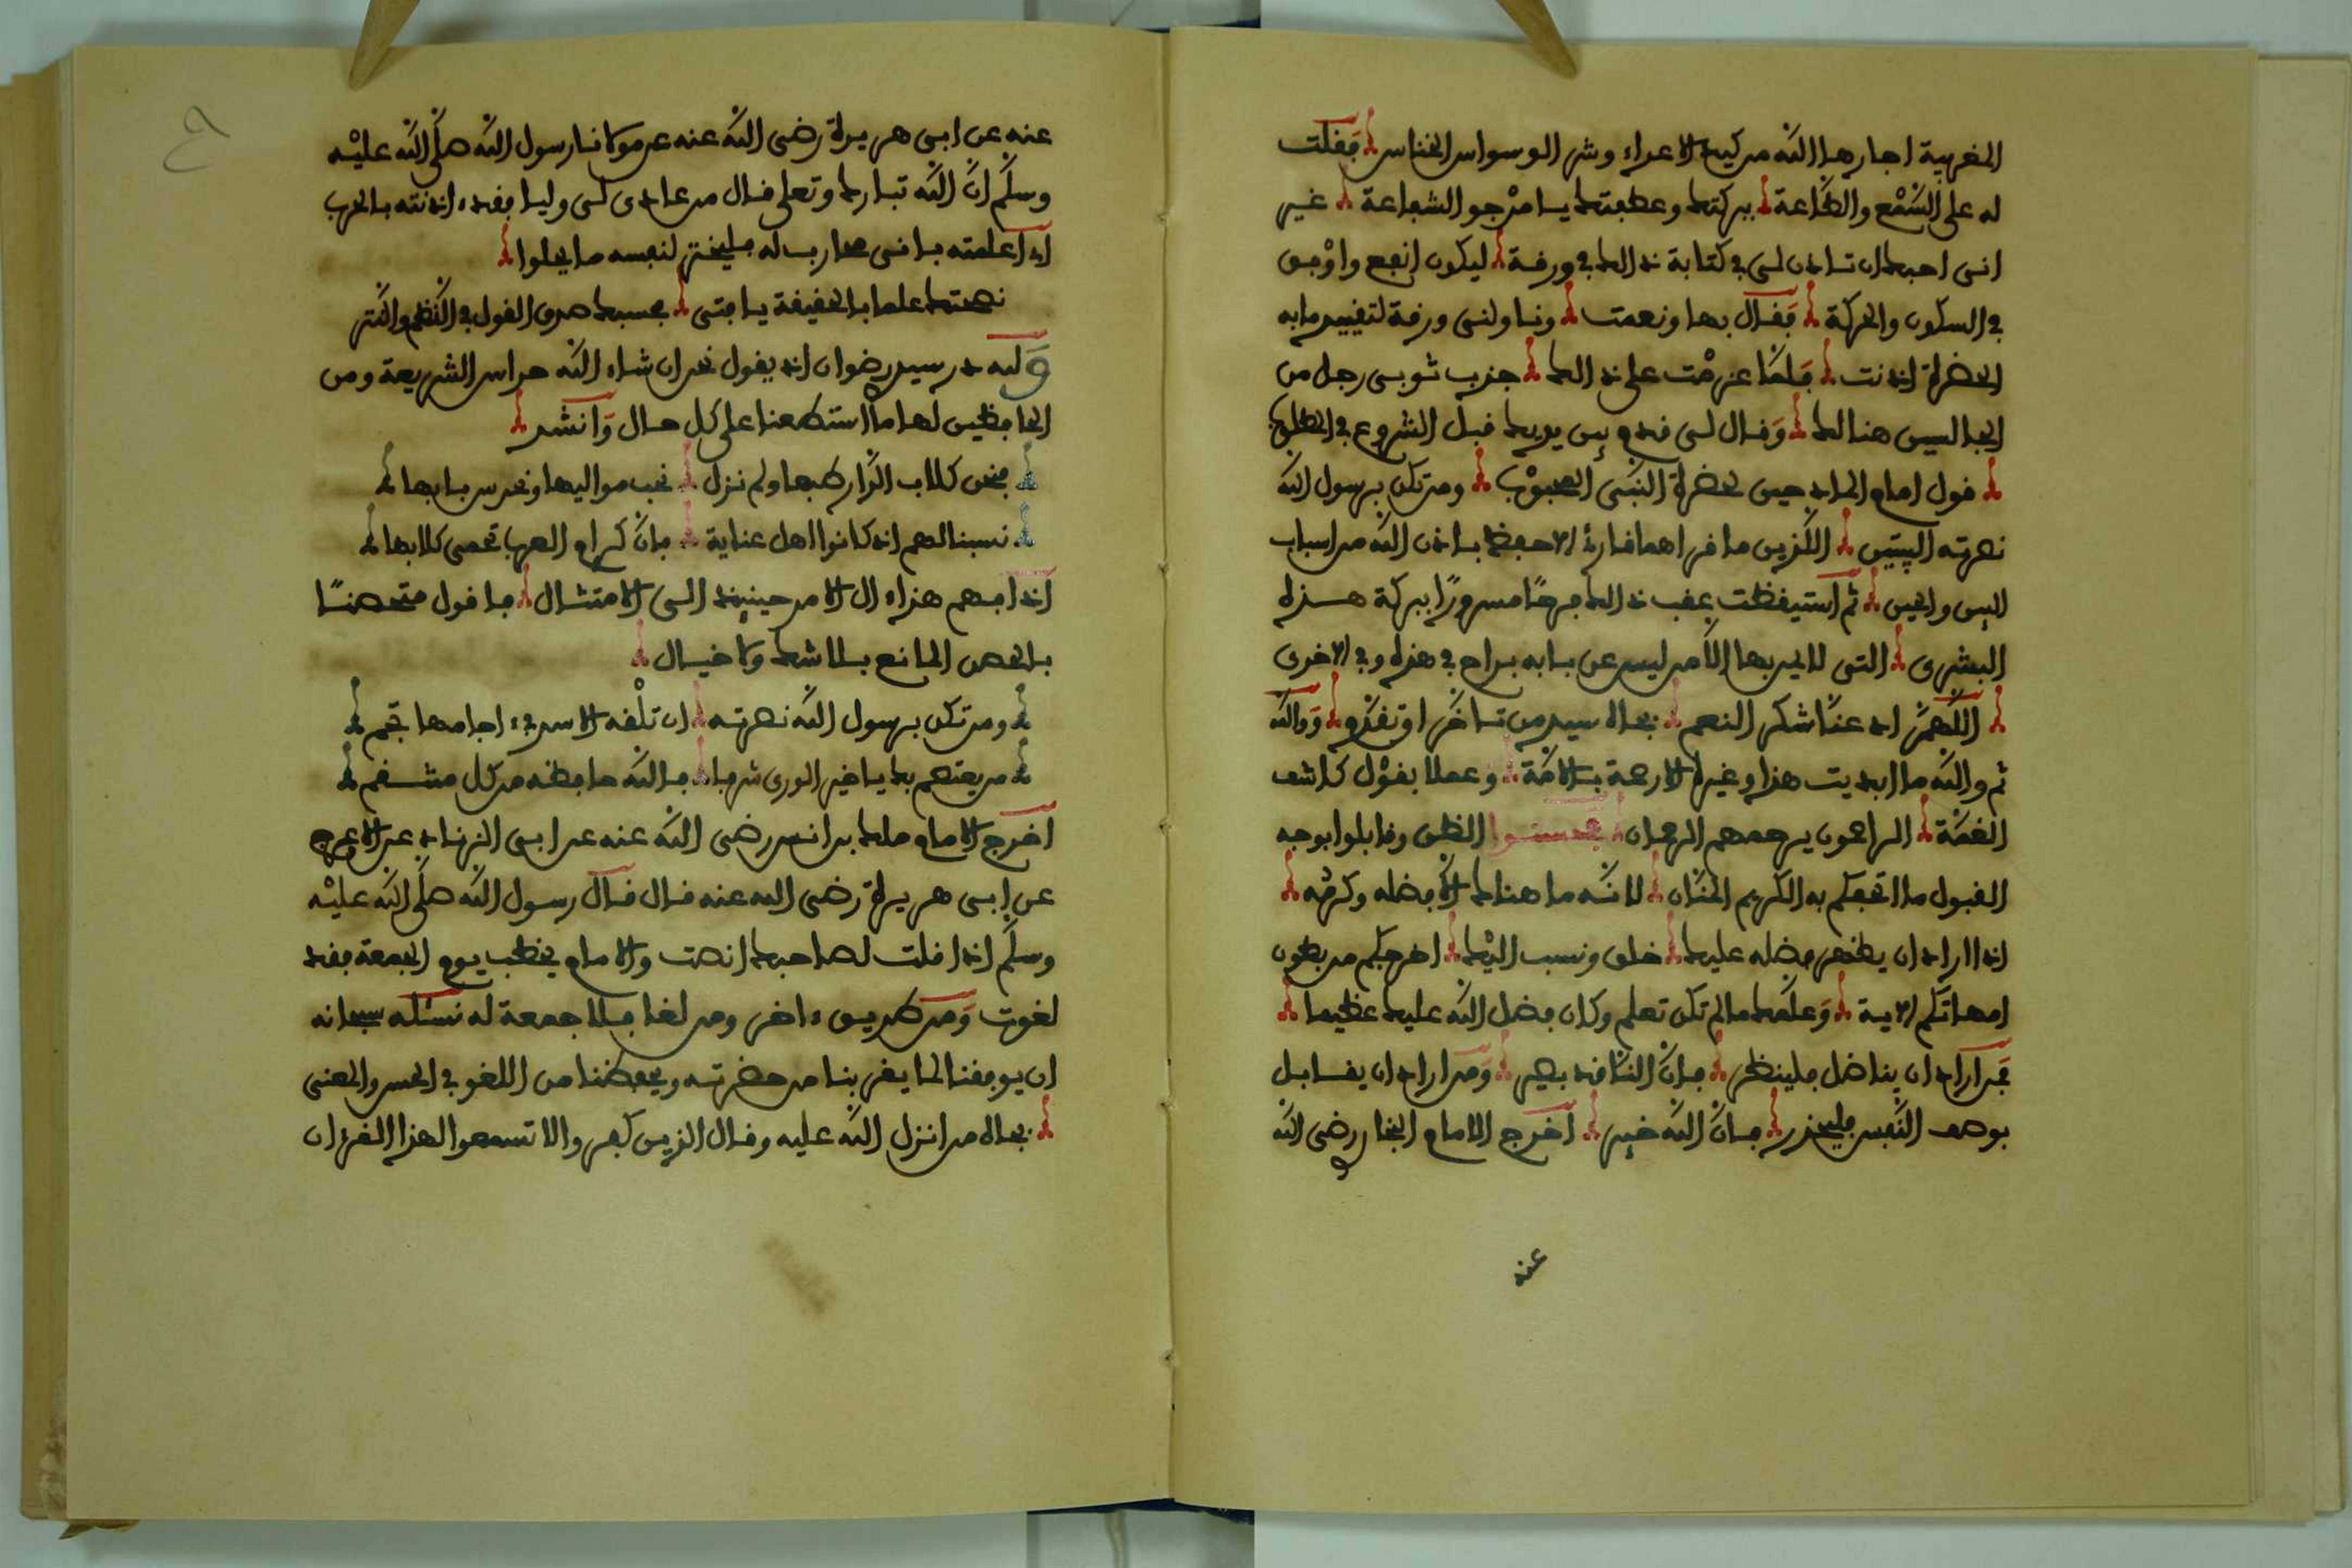 المغربية اجارها الله من كيد الاعداء وشر الوسواس الخناس فقلت
له على السمع والطاعة ببركتك وعطفتك يا مرجو الشفاعة غير
انى احبك ان تاذن لى في كتابة ذالك في ورقة ليكون انفع واوفق
في السكون والحركة فقال بها ونعمت وناولنى ورقة لتقييد ما به
الحضرة اذنت فلما عزمت على ذالك جذب ثوبى رجل من
الجالسين هنالك وقال لى قدم بين يديك قبل الشروع في المطلوب
قول امام المادحين لحضرة النبى المحبوب ومن تكن برسول الله
نصرته البيتين اللذين ما قراهما قارئ الا حفظ باذن الله من اسباب
البين والحين ثم استيقظت عقب ذالك فرحا مسرورا ببركة هذه
البشرى التى لا يدر بها الامر ليس عن بابه براح في هذه وفي الاخرى
اللهم اوزعنا شكر النعم بجاه سيد من تاخر او تقدم ووالله
ثم والله ما ابديت هذا وغيره الا رحمة بالامة وعملا بقول كاشف
الغمة الراحمون يرحمهم الرحمان فحسنوا الظن وقابلوا بوجه
القبول ما اتحفكم به الكريم المنان لانه ما هناك الا فضله وكرمه
اذا اراد ان يظهر فضله عليك خلق ونسب اليك اخرجكم من بطون
امهاتكم الاية وعلمك ما لم تكن تعلم وكان فضل الله عليك عظيما
فمن اراد ان يناضل فلينظر فان الناقد بصير ومن اراد ان يقابل
بوصف النفس فليحذر فان الله خبير اخرج الامام البخاري رضى الله
عنه
عنه عن ابى هريرة رضى الله عنه عن مولانا رسول الله صلى الله عليه
وسلم ان الله تبارك وتعلى قال من عادى لى وليا فقد ءاذنته بالحرب
اى اعلمته بانى محارب له فليختر لنفسه ما يحلوا
نصحتك علما بالحقيقة يا فتى فحسبك صدق القول في النظم والنثر
ولله در سيد رضوان اذ يقول نحن ان شاء الله حراس الشريعة ومن
الحافظين لها ما استطعنا على كل حال وانشد
فنحن كلاب الدار طبعا ولم نزل نحب مواليها ونحرس بابها
نسبنا لهم اذ كانوا اهل عناية فان كرام العرب تحمى كلابها
اذا فهم هذا ءال الامر حينئذ الى الامتثال فاقول متحصنا
بالحصن المانع بلا شك ولا خيال
ومن تكن برسول الله نصرته ان تلقه الاسد في ءاجامها تجم
من يعتصم بك يا خير الورى شرفا فالله حافظه من كل منتقم
اخرج الامام ملك بن انس رضى الله عنه عن ابى الزناد عن الاعرج
عن ابى هريرة رضى الله عنه قال قال رسول الله صلى الله عليه
وسلم اذا قلت لصاحبك انصت والامام يخطب يوم الجمعة فقد
لغوت ومن طريق ءاخر ومن لغا فلا جمعة له نسئله سبحانه
ان يوفقنا لما يقربنا من حضرته ويحفظنا من اللغو في الحس والمعنى
بجاه من انزل الله عليه وقال الذين كفروا لا تسمعوا لهذا القرءان